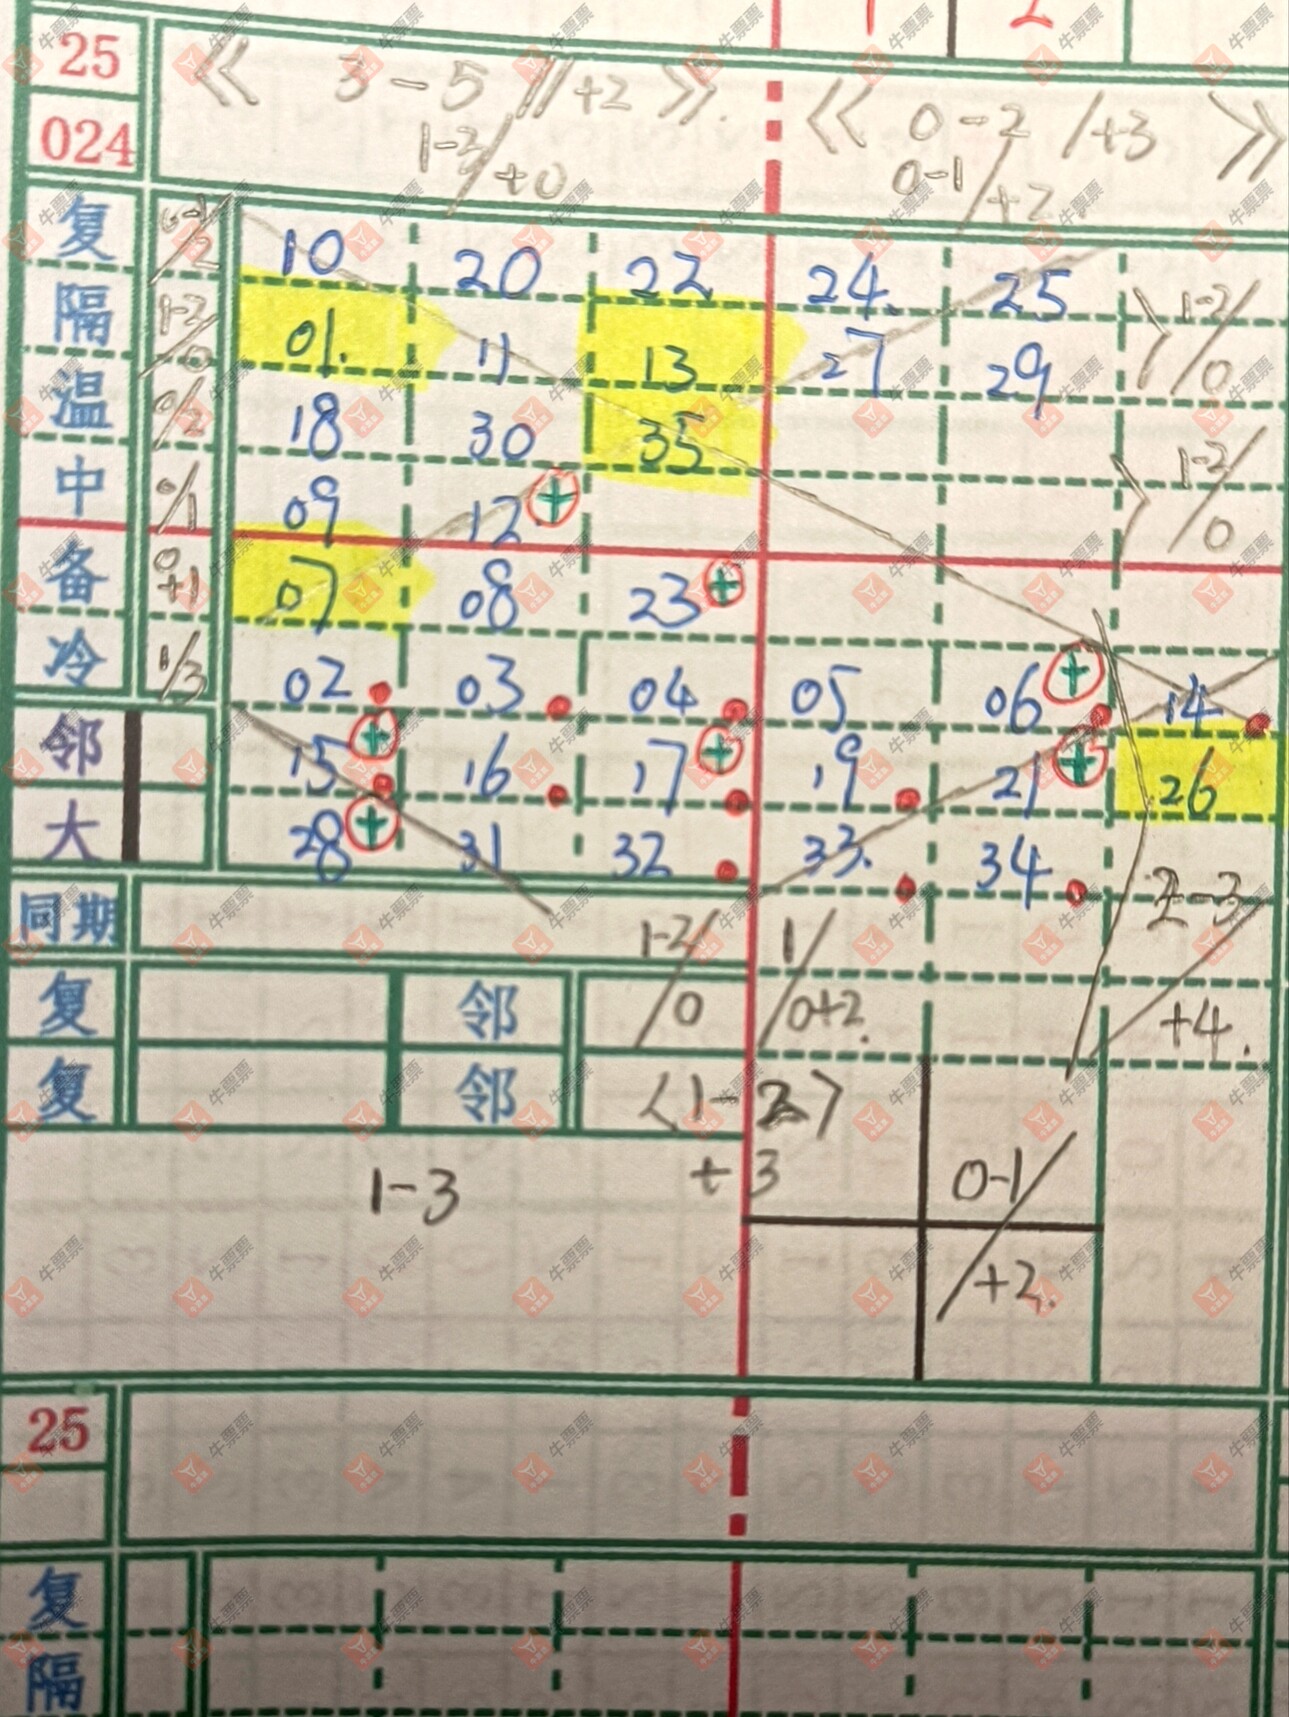 25
024
《 3-5 //+2 》.
1-3/+0
《 0-2 /+3 》
0-1/+2.
复 0-1/2 10 20 22 24. 25
隔 1-2/0 01. 11 13 27 29 1-2/0
温 0/2 18 30 35
中 0/1 09 12 + 1-2/0
备 0+1 07 08 23 +
冷 1/3 02 03 04 05 06 + 14
邻 15 + 16 17 + 19 21 + 26
大 28 + 31 32 33. 34 2-3
同期 1-2/0 1/0+2. +4.
复 邻
复 邻 〈1-2〉
1-3 +3 0-1/+2.
25
复
隔
牛票票